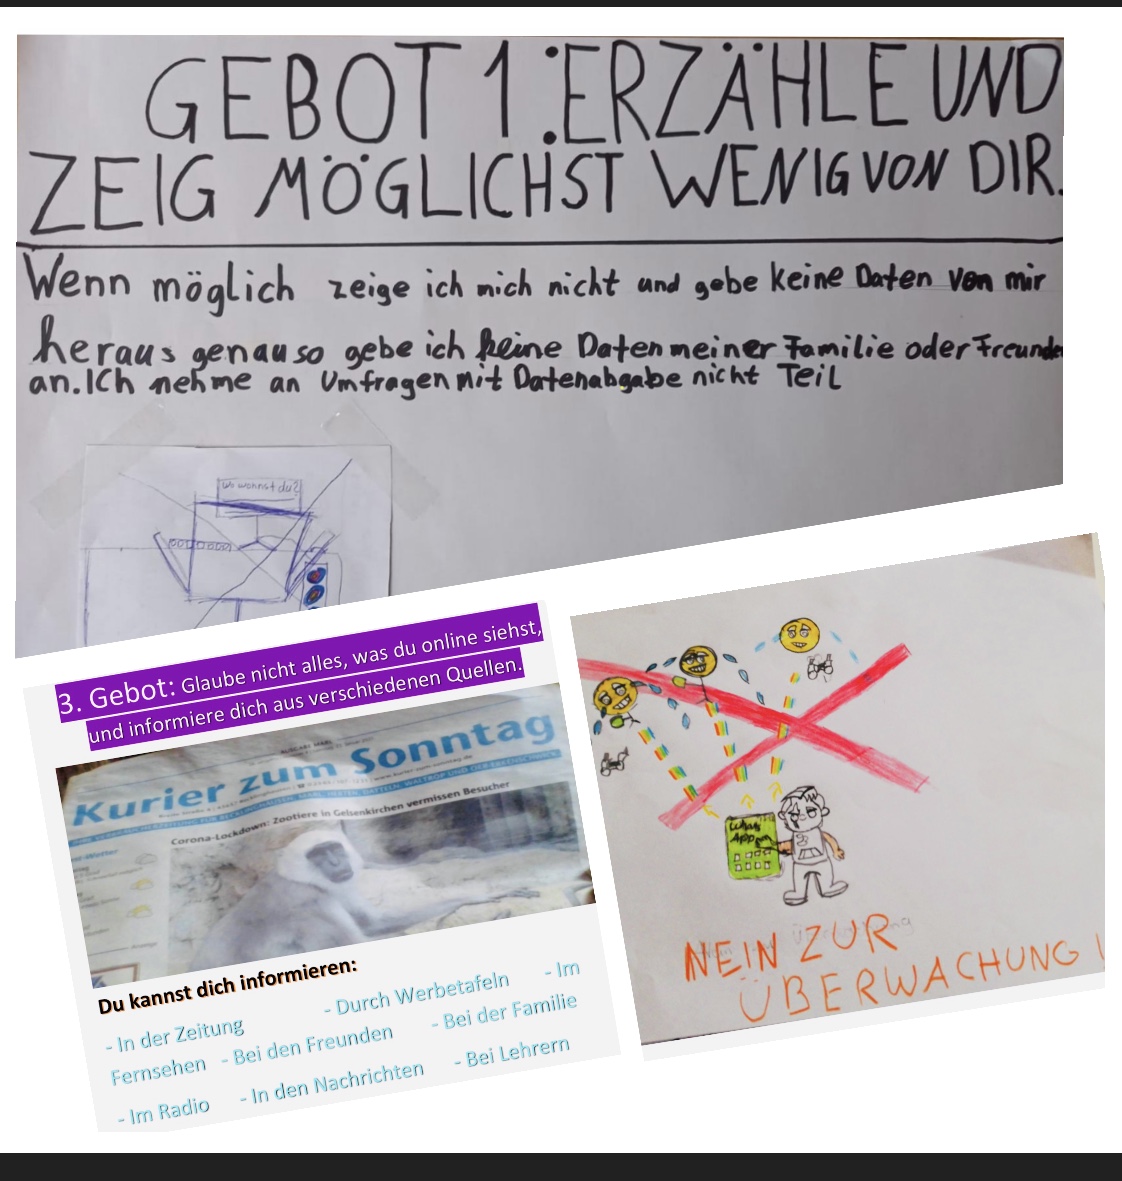 GEBOT 1: ERZÄHLE UND
ZEIG MÖGLICHST WENIG VON DIR.
Wenn möglich zeige ich mich nicht und gebe keine Daten von mir
heraus genauso gebe ich keine Daten meiner Familie oder Freunde
an. Ich nehme an Umfragen mit Datenabgabe nicht Teil
Wo wohnst du?
3. Gebot: Glaube nicht alles, was du online siehst,
und informiere dich aus verschiedenen Quellen.
Kurier zum Sonntag
Corona-Lockdown: Zootiere in Gelsenkirchen vermissen Besucher
Du kannst dich informieren:
- In der Zeitung - Durch Werbetafeln - Im
Fernsehen - Bei den Freunden - Bei der Familie
- Im Radio - In den Nachrichten - Bei Lehrern
Whats
App
NEIN ZUR
ÜBERWACHUNG